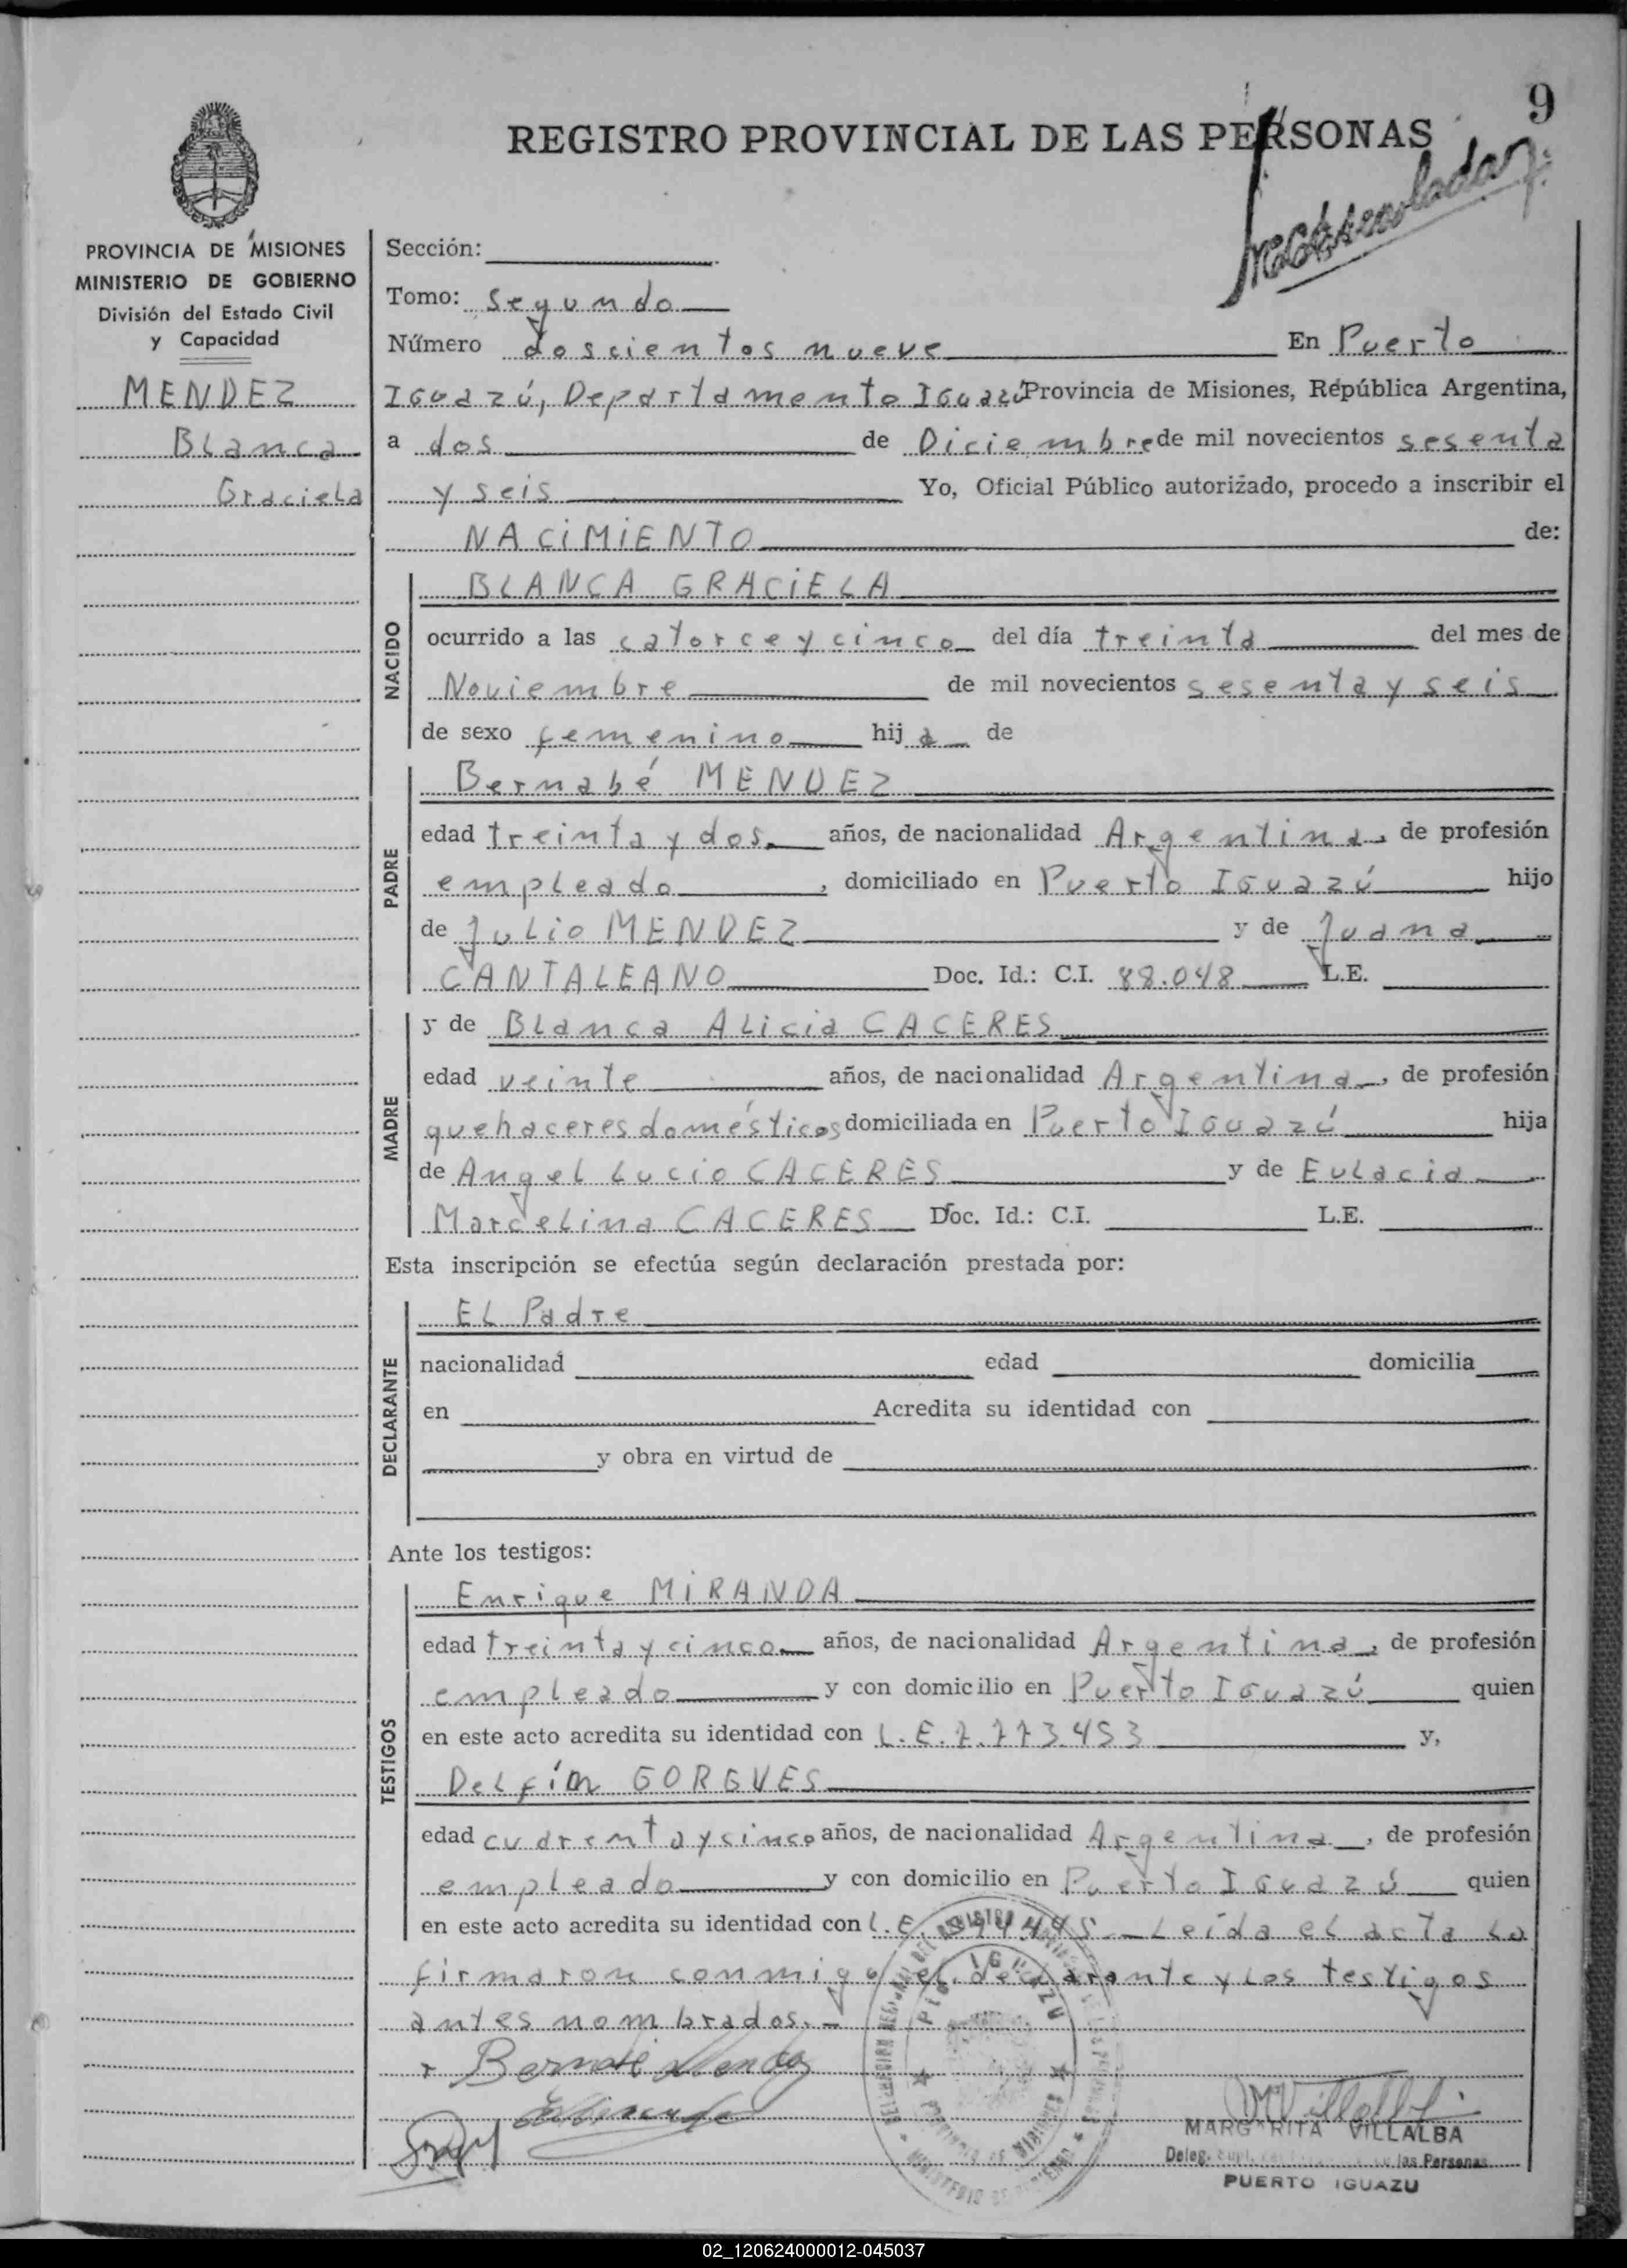 9
REGISTRO PROVINCIAL DE LAS PERSONAS
PROVINCIA DE MISIONES
MINISTERIO DE GOBIERNO
División del Estado Civil
y Capacidad
MENDEZ
Blanca
Graciela
Sección:
Tomo: segundo
Número doscientos nueve En Puerto
Iguazú, Departamento Iguazú Provincia de Misiones, República Argentina,
a dos de Diciembre de mil novecientos sesenta
y seis Yo, Oficial Público autorizado, procedo a inscribir el
NACIMIENTO de:
NACIDO
BLANCA GRACIELA
ocurrido a las catorce y cinco del día treinta del mes de
Noviembre de mil novecientos sesenta y seis
de sexo femenino hija de
PADRE
Bernabé MENDEZ
edad treinta y dos años, de nacionalidad Argentina, de profesión
empleado, domiciliado en Puerto Iguazú hijo
de Julio MENDEZ y de Juana
CANTALEANO Doc. Id.: C.I. 88.048 L.E.
MADRE
y de Blanca Alicia CACERES
edad veinte años, de nacionalidad Argentina, de profesión
quehaceres domésticos domiciliada en Puerto Iguazú hija
de Angel Lucio CACERES y de Eulacia
Marcelina CACERES Doc. Id.: C.I. L.E.
Esta inscripción se efectúa según declaración prestada por:
DECLARANTE
El Padre
nacionalidad edad domicilia
en Acredita su identidad con
y obra en virtud de
Ante los testigos:
TESTIGOS
Enrique MIRANDA
edad treinta y cinco años, de nacionalidad Argentina, de profesión
empleado y con domicilio en Puerto Iguazú quien
en este acto acredita su identidad con L.E. 7.773.453 y,
Delfín GORGUES
edad cuarenta y cinco años, de nacionalidad Argentina, de profesión
empleado y con domicilio en Puerto Iguazú quien
en este acto acredita su identidad con L.E. Leída el acta la
firmaron conmigo, el declarante y los testigos
antes nombrados.-
Bernabé Mendez
MARGARITA VILLALBA
Deleg. Supl. las Personas
PUERTO IGUAZU
02_120624000012-045037